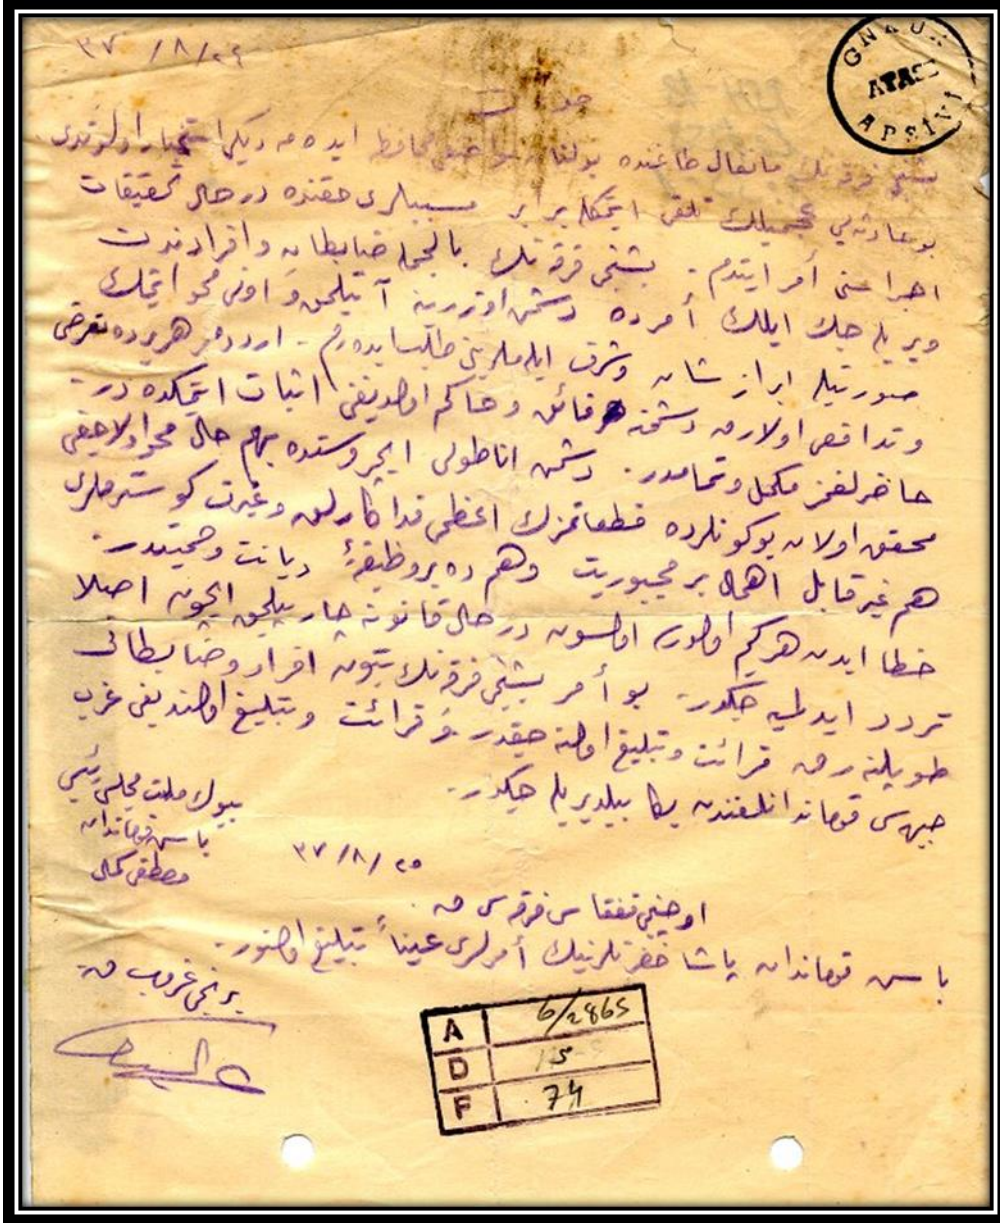 GNKUR
ATASE
ARŞİVİ
٣٧ / ٨ / ٢٤
بشنجی فرقه‌نك مانغال طاغنده بولنان مواضعی محافظه ایده‌مه‌دیكی استخبار اولوندی
بو حادثه‌یی تلقی ایتمكله برابر سببلری حقنده درحال تحقیقات
اجراسنی أمر ایتدم . بشنجی فرقه‌نك بالجمله ضابطان و افرادندن
ویریله‌جك ایلك أمرده دشمن اوزرینه آتیلمق و اونی محو ایتمك
صورتیله ابراز شان و شرف ایله‌ملرینی طلب ایده‌رم . اردومز هر یرده تعرضی
و تدافعی اولارق دشمنه فائق و حاكم اولدیغنی اثبات ایتمكده‌در .
حاضرلغمز مكمل و تمامدر . دشمن اناطولی ایچروسنده بهم حال محو اولاجغی
محقق اولان بو كونلرده قطعاتمزك اعظمی فداكارلق و غیرت كوسترملری
هم غیر قابل اهمال بر مجبوریت و هم ده بر وظیفۀ دیانت و حمیتدر .
خطا ایدن هر كیم اولورسه اولسون درحال قانونه چارپیلمق ایچون اصلا
تردد ایدلمیه‌جكدر . بو أمر بشنجی فرقه‌نك بتون افراد و ضابطانی
طوپلانه‌رق قرائت و تبلیغ اولنه‌جقدر . قرائت و تبلیغ اولندیغی غرب
جبهه‌سی قوماندانلغندن بكا بیلدیریله‌جكدر .
بیوك ملت مجلسی رئیسی
باش قوماندان
مصطفی كمال
٣٧ / ٨ / ٢٥
اوچنجی قفقاس فرقه‌سی
باش قوماندان پاشا حضرتلرینك أمرلری عیناً تبلیغ اولنور .
برنجی غروب
A 6/2865
D 15-
F 74